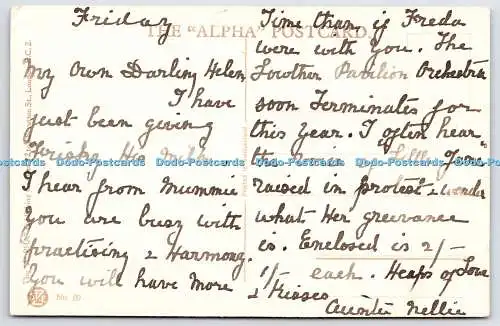 Friday
THE "ALPHA" POSTCARD
My Own Darling Helen,
I have
just been giving
Frisky His Milk.
I hear from Mummie
you are busy with
practising & Harmony.
You will have more
Time than if Freda
were with you. The
Lowther Pavilion Orchestra
soon Terminates for
this Year. I often hear
the voice of
raised in protest & wonder
what Her greevance
is. Enclosed is 2/-
1/- each. Heaps of Love
& Kisses
Auntie Nellie
No. 50
Dodo-Postcards Dodo-Postcards Dodo-Postcards Dodo-Postcards Dodo-Postcards Dodo-Postcards